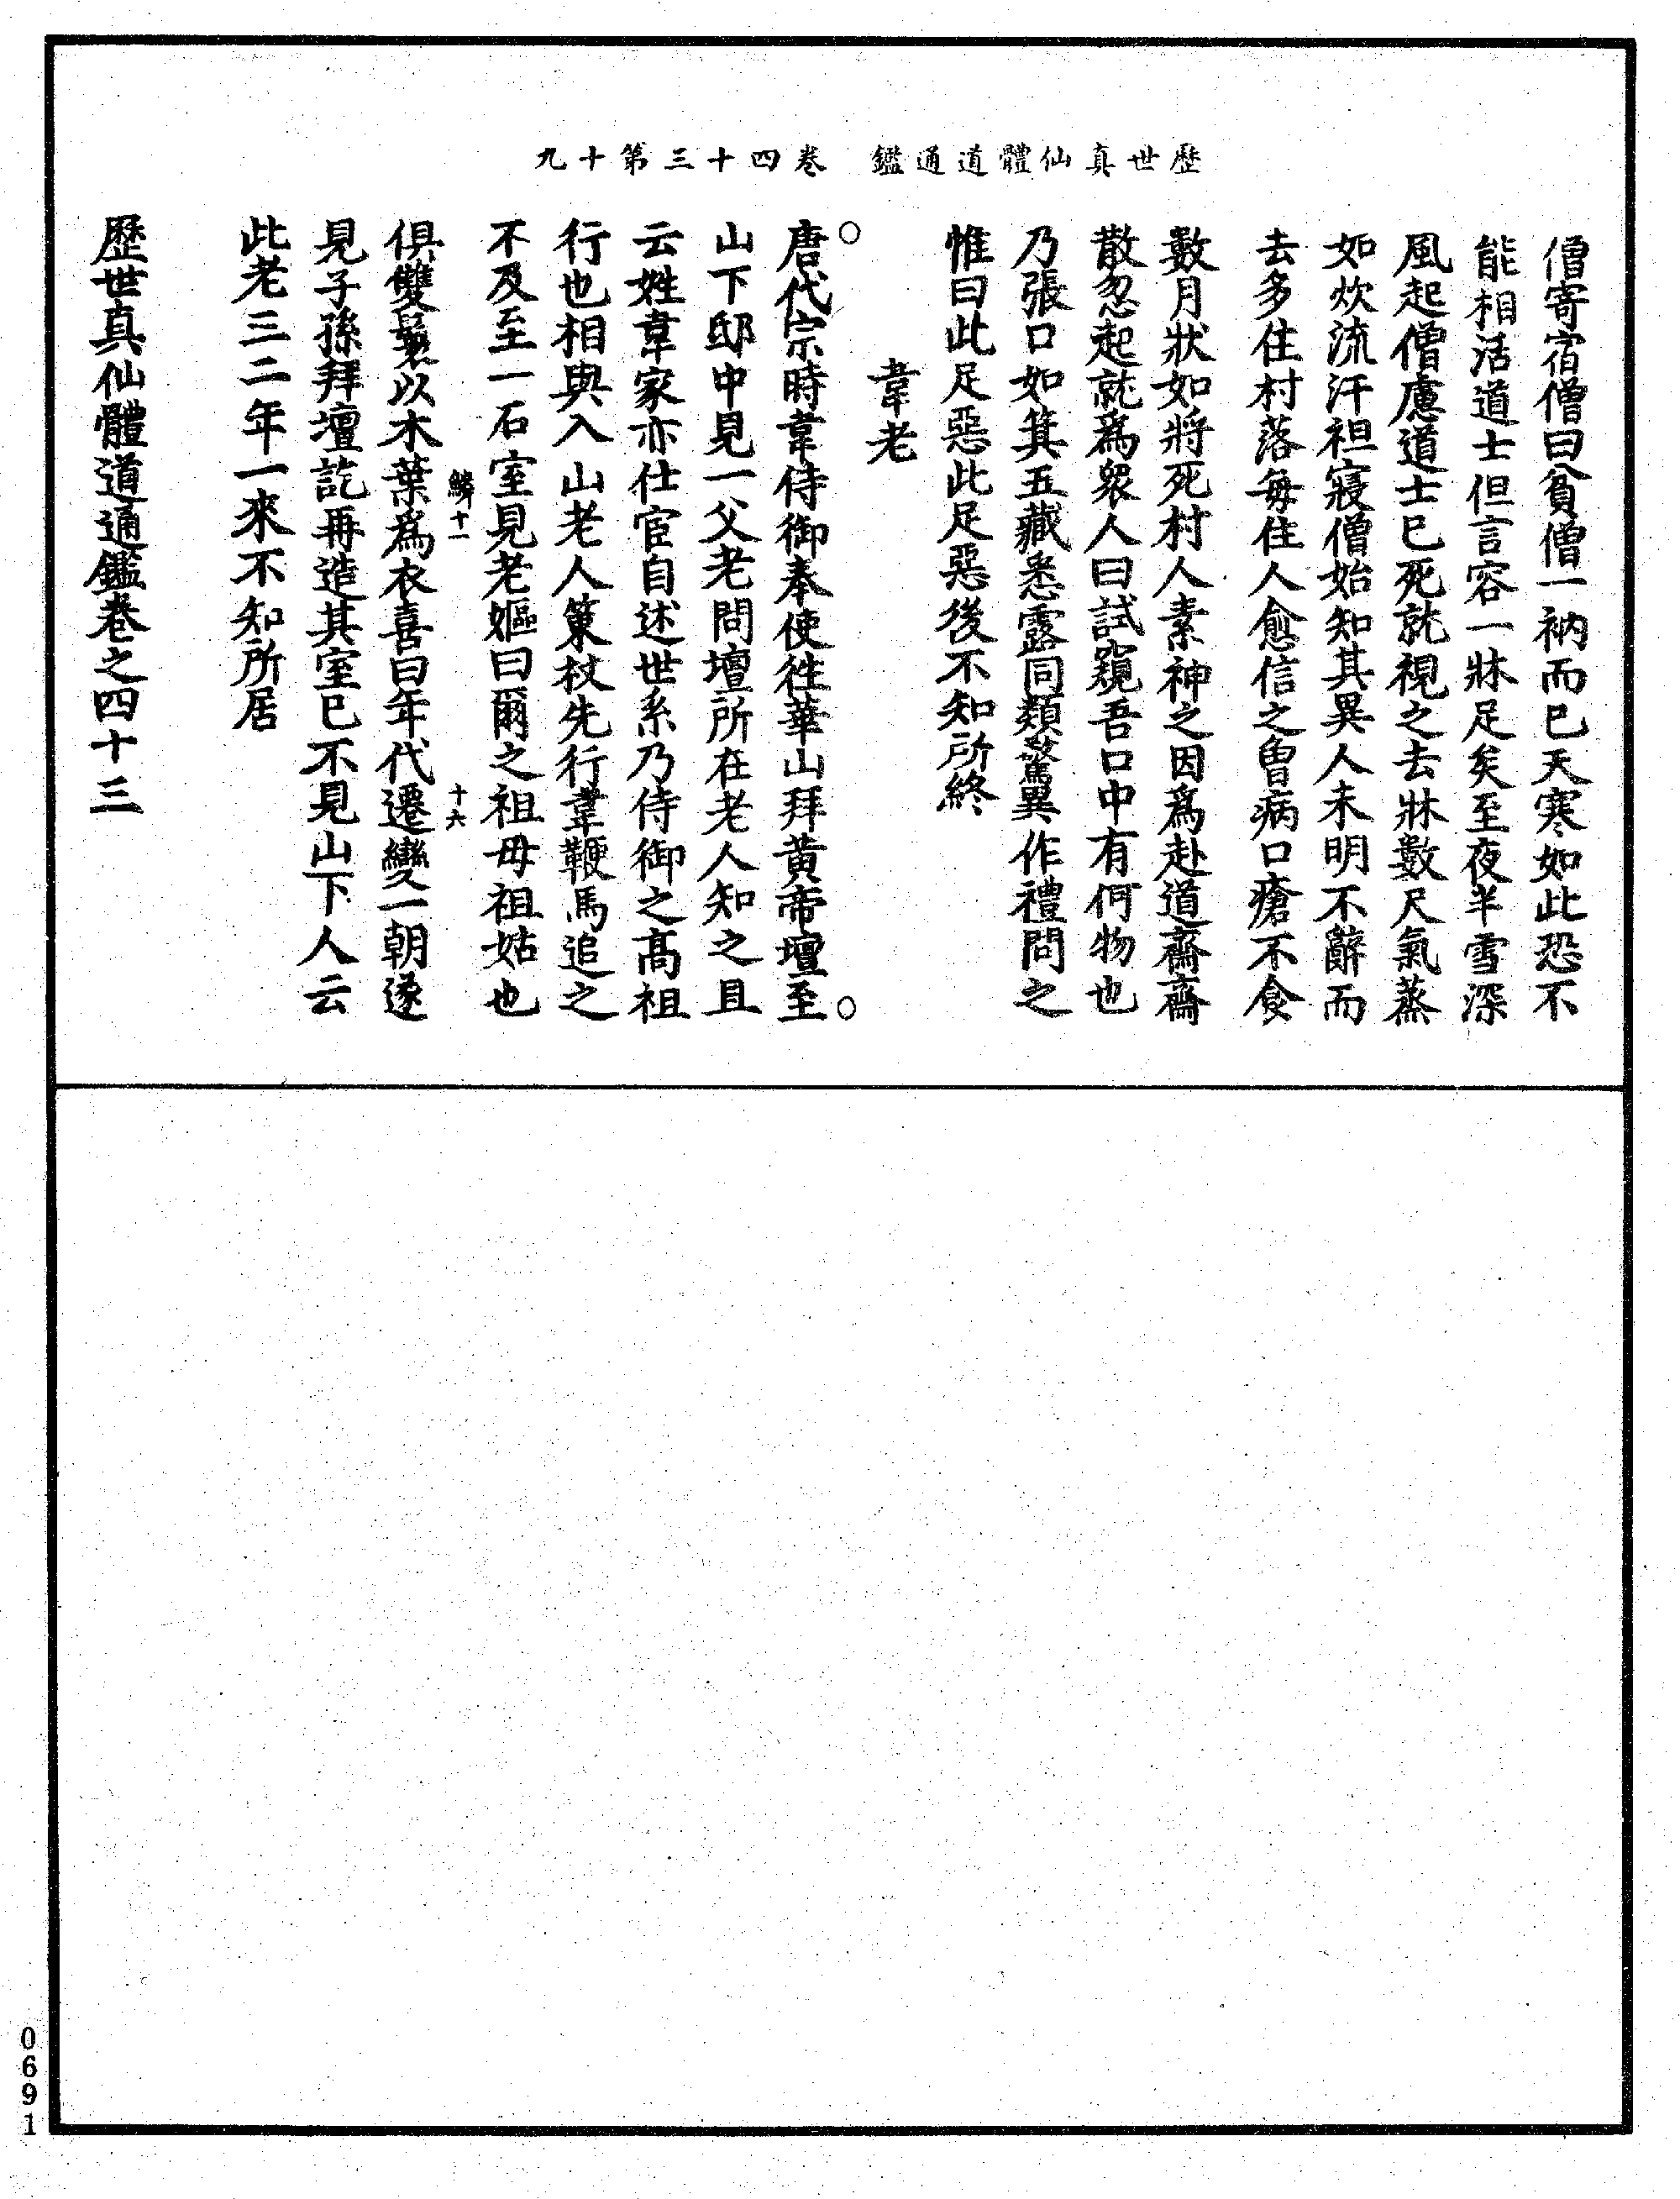 歷世真仙體道通鑑　卷四十三第十九
僧寄宿僧曰貧僧一衲而已天寒如此恐不
能相活道士但言容一牀足矣至夜半雪深
風起僧慮道士已死就視之去牀數尺氣蒸
如炊流汗袒寢僧始知其異人未明不辭而
去多住村落每住人愈信之曽病口瘡不食
數月狀如將死村人素神之因爲赴道齋齋
散忽起就爲衆人曰試窺吾口中有何物也
乃張口如箕五藏悉露同類驚異作禮問之
惟曰此足惡此足惡後不知所終
韋老
唐代宗時韋侍御奉使徃華山拜黄帝壇至
山下邸中見一父老問壇所在老人知之且
云姓韋家亦仕宦自述世系乃侍御之高祖
行也相與入山老人策杖先行韋鞭馬追之
不及至一石室見老嫗曰爾之祖母祖姑也
鱗十一　十六
俱雙鬟以木葉爲衣喜曰年代遷變一朝遂
見子孫拜壇訖再造其室已不見山下人云
此老三二年一來不知所居
歷世真仙體道通鑑卷之四十三
0691